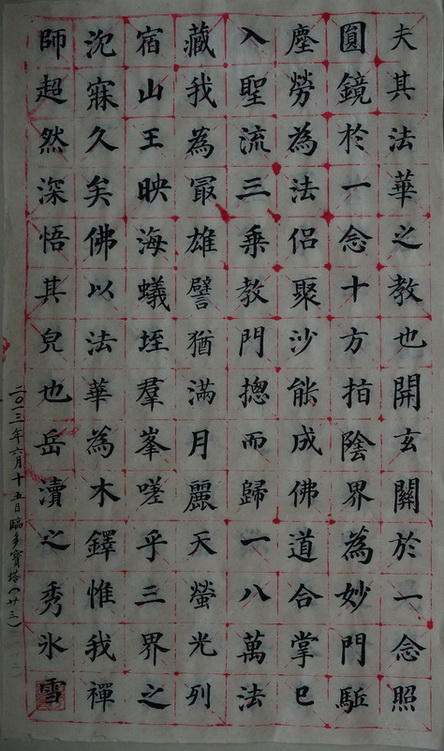 夫其法華之教也開玄關於一念照
圓鏡於一念十方指陰界為妙門駈
塵勞為法侶聚沙能成佛道合掌已
入聖流三乘教門揔而歸一八萬法
藏我為冣雄譬猶滿月麗天螢光列
宿山王映海蟻垤羣峯嗟乎三界之
沈寐久矣佛以法華為木鐸惟我禪
師超然深悟其皃也岳瀆之秀氷雪
二〇一三年六月十五日臨多寶塔(廿三)